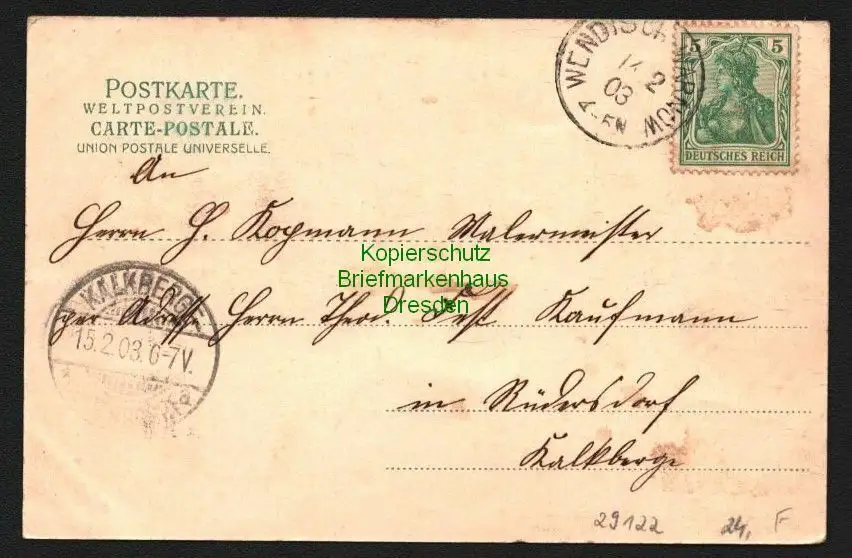 POSTKARTE.
WELTPOSTVEREIN.
CARTE-POSTALE.
UNION POSTALE UNIVERSELLE.
WENDISCH WARNOW
14 2
03
5 5
DEUTSCHES REICH
An
Herrn H. Kopmann Malermeister
Kopierschutz
Briefmarkenhaus
Dresden
per Adresse Herrn Theod. Fest Kaufmann
KALKBERGE
15.2.03.6-7V.
in Rüdersdorf
Kalkberge
29122 24, F